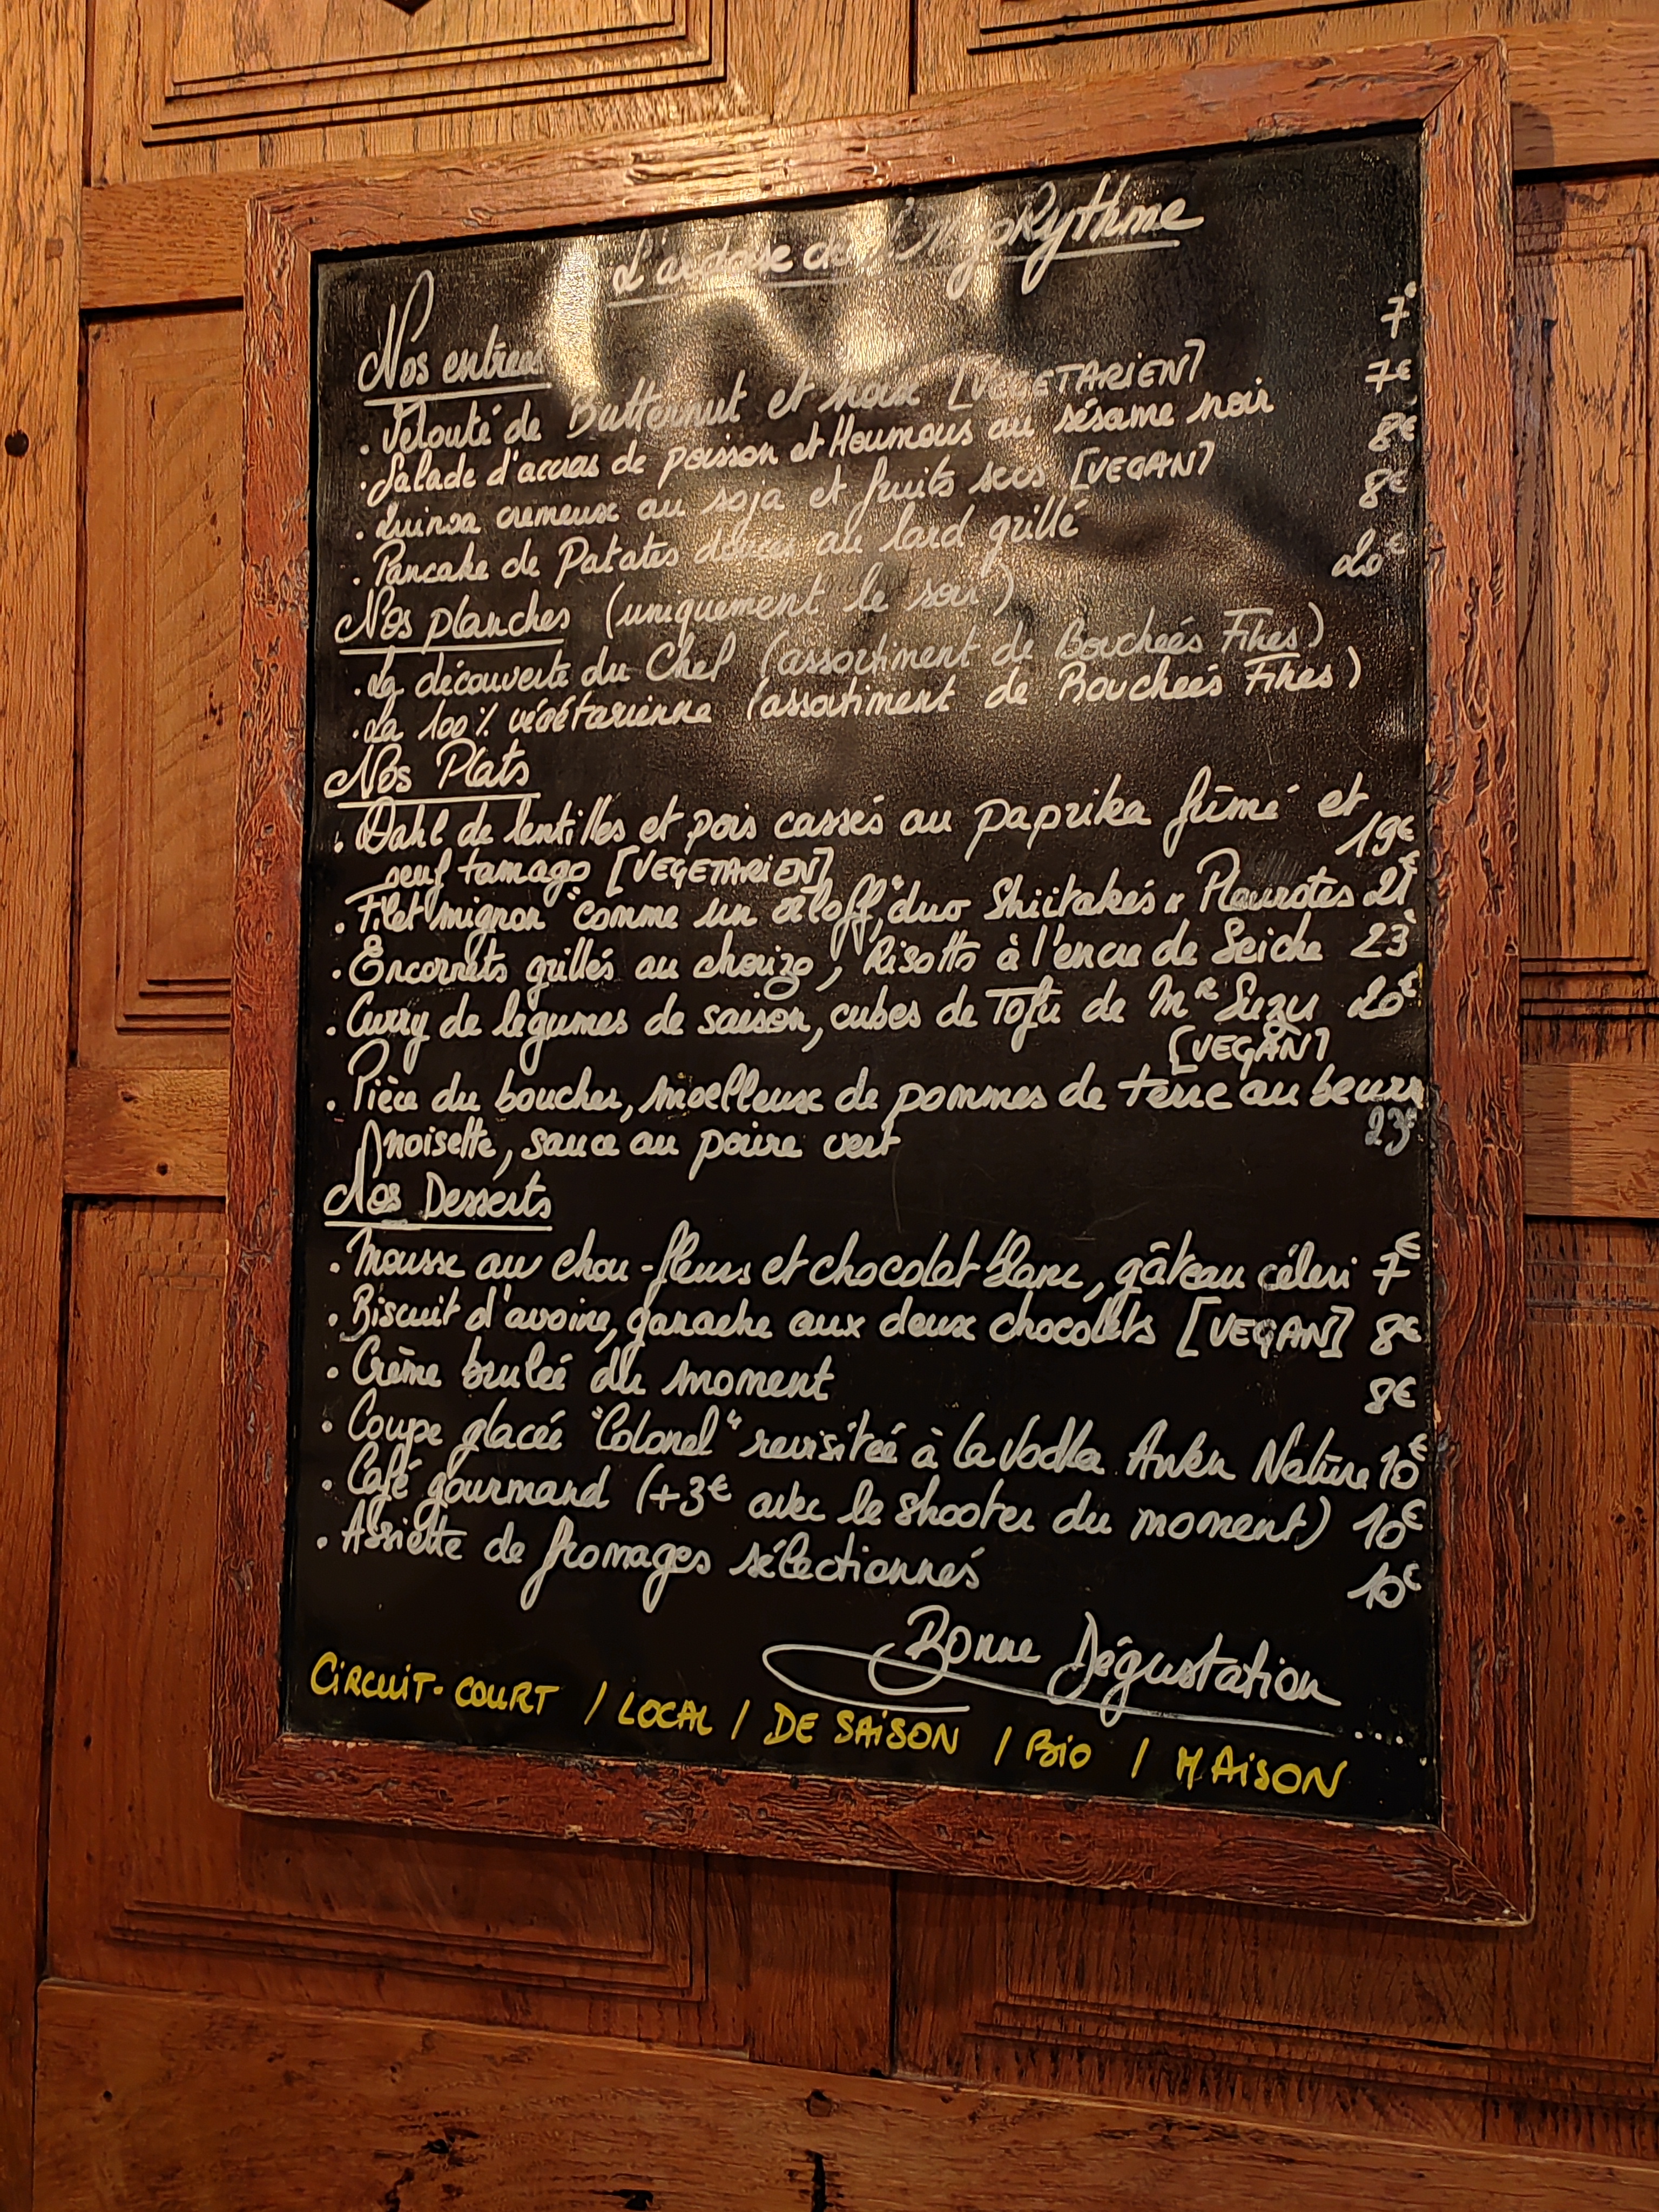 L'ardoise de l'HypoRythme
Nos entrees
7€
. Velouté de Butternut et noix [VEGETARIEN]
7€
. Salade d'accras de poisson et Houmous au sésame noir
8€
. Quinoa crémeux au soja et fruits secs [VEGAN]
8€
. Pancake de Patates douces au lard grillé
Nos planches (uniquement le soir)
20€
. La découverte du Chef (assortiment de Bouchées Fines)
. La 100% végétarienne (assortiment de Bouchées Fines)
Nos Plats
. Dahl de lentilles et pois cassés au paprika fûmé et
oeuf tamago [VEGETARIEN] 19€
. Filet mignon "comme un orloff", duo Shiitakés & Pleurotes 21€
. Encornets grillés au chorizo, Risotto à l'encre de Seiche 23€
. Curry de légumes de saison, cubes de Tofu de Mr Suzu 20€
[VEGAN]
. Pièce du boucher, moelleux de pommes de terre au beurre
noisette, sauce au poivre vert 23€
Nos Desserts
. Mousse au chou-fleurs et chocolat blanc, gâteau céleri 7€
. Biscuit d'avoine, ganache aux deux chocolats [VEGAN] 8€
. Crème brulée du moment 8€
. Coupe glacée "Colonel" revisitée à la Vodka Awen Nature 10€
. Café gourmand (+3€ avec le shooter du moment) 10€
. Assiette de fromages sélectionnés 10€
Bonne Dégustation....
CIRCUIT-COURT / LOCAL / DE SAISON / BIO / MAISON